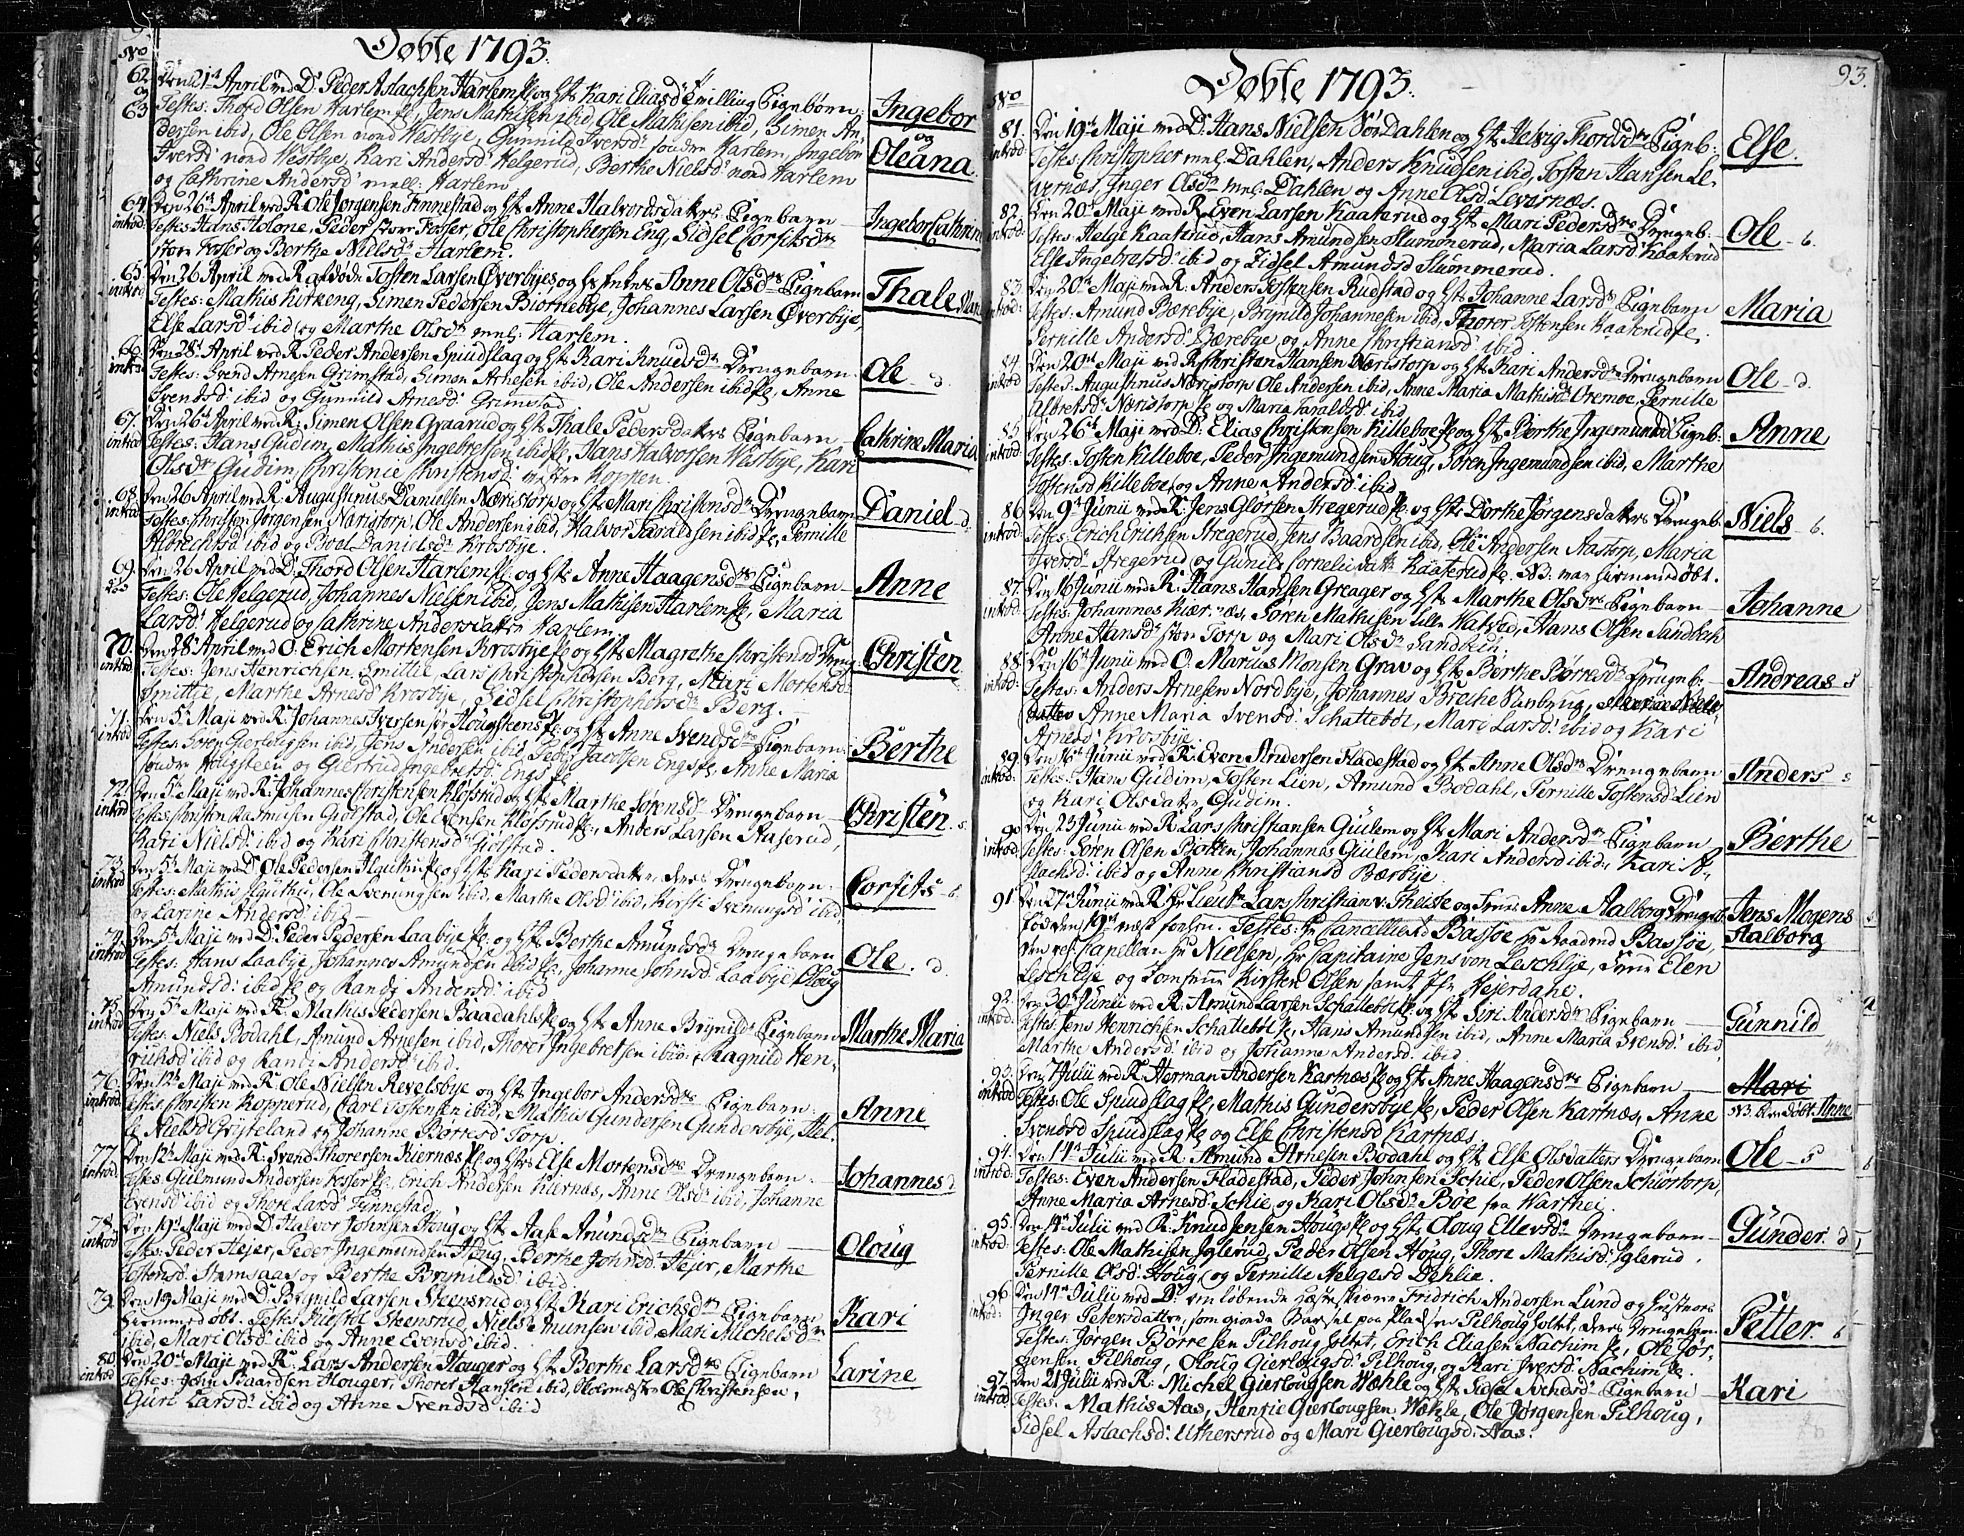 Døbte 1793.
No
62 Den 21de April ved D: Peder Aslachsen Harlem og Hst: Kari Eliasd: Tvilling Pigebørn
og
63 Testes: Thord Olsen Harlem, Jens Mathisen ibid, Ole Mathisen ibid, Simen An-
dersen ibid, Ole Olsen nord Westbye, Gunnild Iversd: søndre Harlem, Ingebor
Iversd: nord Westbye, Kari Andersd: Helgerud, Berthe Nielsd: nord Harlem
og Cathrine Andersd: mell: Harlem
Ingebor
og
Oleana.
64 Den 26de April ved R: Ole Jørgensen Finnestad og Hst: Anne Halvorsdatters Pigebarn
introd: Testes: Hans Holone, Peder store Fosser, Ole Christophersen Eng, Sidsel Corfitsdr
store Fosser og Berthe Nielsd: Harlem.
Ingebor Cathrine
65. Den 26 April ved R: afdøde Tosten Larsen Øverbyes og Hst: Enkes Anne Olsdrs Pigebarn
introd Testes: Mathis Kirkeng, Simen Pedersen Biørnebye, Johannes Larsen Øverbye
Else Larsd: ibid og Marthe Olsdr mell: Harlem.
Thale Mari
66. Den 28de April ved R: Peder Andersen Spiudslag og Hst: Kari Knudsdr Drengebarn
introd Testes: Svend Arnesen Grimstad, Simen Arnesen ibid, Ole Andersen ibid, Anne
Svendsd: ibid og Gunnild Arnesd: Grimstad
Ole d.
67. Den 26de April ved R: Simen Olsen Graarud og Hst: Thale Pedersdatters Pigebarn
introd Testes: Hans Gudim, Mathis Ingebretsen ibid, Hans Halvorsen Westbye, Kari
Olsdr Gudim, Christenie Christensd: Koppen.
Cathrine Maria
68. Den 26 April ved R: Augustinus Danielsen Næristorp og Hst: Mari Christensdr Drengebarn
introd Testes: Christen Jørgensen Næristorp, Ole Andersen ibid, Halvor Haraldsen ibid, Pernille
Albrechtsd: ibid og Boel Danielsdr Krosbye.
Daniel d.
69. Den 26 April ved D: Thord Olsen Harlem og Hst: Anne Haagensdrs Pigebarn
Testes: Ole Helgerud, Johannes Nielsen ibid, Jens Mathisen Harlem, Maria
Larsd: Helgerud og Cathrine Andersdatter Harlem.
Anne
70. Den 28de April ved O: Erich Mortensen Krosbye og Hst: Magrethe Christensd: Dreng
introd Testes: Jens Henrichsen Smittie, Lars Christophersen Berg, Mari Mortensd:
Smittie, Marthe Arnesd: Krosbye, Sidsel Christophersdr Berg.
Christen
71. Den 5te Maji ved R: Johannes Iversen sør Hougsteen og Hst: Anne Svendsdrs Pigebarn
introd Testes: Søren Gierlougsen ibid, Jens Andersen ibid, Peder Jacobsen Engs, Anne Maria
søndre Hougsteen og Giertrud Ingebretsd: Engs
Berthe
72. Den 5te Maji ved R: Johannes Christensen Klofsrud og Hst: Marthe Sørensdr Drengebarn
introd Testes: Christen Rasmusen Giølstad, Ole Evensen Klofsrud, Anders Larsen Aaserud,
Kari Nielsd: ibid og Kari Christensd: Giølstad.
Christen. s.
73. Den 5te Maji ved D: Ole Pedersen Aguthus og Hst: Kari Pedersdatter, deres Drengebarn
introd Testes: Mathis Aguthus, Ole Svenungsen ibid, Marthe Olsd: ibid, Kirsti Svenungsd: ibid
og Larine Andersd: ibid
Corfits b.
74. Den 5te Maji ved D: Peder Pedersen Laabye og Hst: Berthe Amundsdr Drengebarn
introd Testes: Hans Laabye, Johannes Amundsen ibid, Johanne Johnsd: Laabye, Oloug
Amundsd: ibid og Randi Andersd: ibid
Ole. d.
75. Den 5te Maji ved R: Mathis Pedersen Baadahls og Hst: Anne Brynildsdr Pigebarn
introd Testes: Niels Bodahl, Amund Arnesen ibid, Thorer Ingebretsen ibid, Ragnild Hen-
richsd: ibid og Randi Andersd: ibid.
Marthe Maria
76. Den 12te Maji ved R: Ole Nielsen Revelsbye og Hst: Ingebor Andersdrs Pigebarn
introd Testes: Christen Kopperud, Carl Tostensen ibid, Mathis Gundersen Gundersbye, Hel-
Nielsd: Gryteland og Johanne Børresd: Torp.
Anne
77. Den 12te Maji ved R: Svend Thorersen Kiernæs og Hst: Else Mortensdrs Drengebarn
introd Testes: Gulmund Andersen Fosser, Erich Andersen Kiernæs, Anne Olsd: ibid, Johanne
Evensd: ibid og Thore Larsd: Finnestad.
Johannes d
78. Den 19de Maji ved D: Halvor Johnsen Houg og Hst: Aase Amundsdr Pigebarn
introd Testes: Peder Hejer, Peder Ingemundsen Houg, Berthe Johnsd: Hejer, Marthe
Tostensd: Stamsaas og Berthe Brynildsd: ibid.
Oloug
79. Den 19 Maji ved D: Brynild Larsen Steensrud og Hst: Kari Erichsdr Pigebarn
hiemmedøbt. Testes: Steensrud, Niels Amunsen ibid, Mari Michelsdr
ibid, Mari Olsd: ibid og Anne Evensd: ibid.
Kari
80 Den 20de Maji ved R: Lars Andersen Houger og Hst: Berthe Larsdrs Pigebarn
introd Testes: John Baardsen Houger, Thorer Hansen ibid, Skolemester Ole Christensen,
Guri Larsd: ibid og Anne Svendsd: ibid
Larine
93.
Døbte 1793.
No
81. Den 19de Maji ved D: Hans Nielsen Sør Dahlen og Hst: Helvig Thordsdr Pigeb:
introd: Testes: Christopher mel: Dahlen, Anders Knudsen ibid, Tosten Hansen Le-
vernæs, Inger Olsdr mel: Dahlen og Anne Olsd: Levernæs.
Else.
82. Den 20de Maji ved R: Even Larsen Kaaterud og Hst: Mari Pedersdrs Drengeb:
introd: Testes: Helge Kaaterud, Hans Amundsen Slummerud, Maria Larsd: Kaaterud
Else Ingebretsd: ibid og Zidsel Amundsd Slummerud.
Ole b.
83 Den 20de Maji ved R: Anders Tostensen Rudstad og Hst: Johanne Larsdr Pigebarn
introd: Testes: Amund Bærebye, Brynild Johannesen ibid, Thorer Tostensen Kaaterud,
Pernille Andersd: Bærebye og Anne Christiansd: ibid
Maria
84. Den 20de Maji ved R: Christen Hansen Næristorp og Hst: Kari Andersdr Drengebarn
introd Testes: Augustinus Næristorp, Ole Andersen ibid, Anne Maria Mathisdr Oremoe, Pernille
Albretsdr Næristorp og Maria Haraldsd: ibid
Ole d.
85 Den 26de Maji ved D: Elias Christensen Killeboe og Hst: Berthe Ingemundsd Pigeb:
introd: Testes: Tosten Killeboe, Peder Ingemundsen Houg, Søren Ingemundsen ibid, Marthe
Tostensd Killeboe og Anne Andersd: ibid
Anne
86 Den 9de Junii ved R: Jens Glørsen Stregerud og Hst: Dorthe Jørgensdatters Drengeb.
introd: Testes: Erich Erichsen Stregerud, Jens Baardsen ibid, Ole Andersen Aastorp, Maria
Iversd: Stregerud og Gunild Corneliidatter Kaaterud. NB: var hiemmedøbt.
Niels b.
87. Den 16 Junii ved R: Hans Hansen Greager og Hst: Marthe Olsdrs Pigebarn
introd: Testes: Johannes Kiærnæs, Søren Mathisen lille Watved, Hans Olsen Sandbek
Anne Hansdr store Torp og Mari Olsdr Sandbek.
Johanne
88. Den 16de Junii ved O: Marius Monsen Grav og Hst: Berthe Børresdr Drengeb:
introd: Testes: Anders Arnesen Nordbye, Johannes Brethe, Anne Maria Svensd: Schattebøl, Mari Larsd: ibid og Kari
Arnesd: Krosbye.
Andreas s
89. Den 16de Junii ved R: Even Andersen Fladestad og Hst: Anne Olsdrs Drengebarn
introd: Testes: Hans Gudim, Tosten Lien, Amund Bodahl, Pernille Tostensd: Lien
og Kari Olsdatter Gudim.
Anders s
90 Den 23 Junii ved R: Lars Christiansen Gulem og Hst: Mari Andersdr Pigebarn
introd: Testes: Søren Olsen Botten, Johannes Gulem, Kari Andersd ibid, Kari A-
slachsd: ibid og Anne Christiansd Bærbye.
Berthe
91 Den 27de Junii ved R: Hr Lieutn Lars Christian v: Theiste og Frue Anne Aalborg Drengeb.
født den 19de næst forhen. Testes: Hr Cancellieraad Bassøe, Hr Raadmd Bassøe,
den res: Capellan Hr Nielsen, Hr Capitaine Jens von Leschlye, Frue Elen
Leschlye og Jomfrue Kirsten Olsen samt Jfr Nejerdahl.
Jens Mogens
Aalborg
92. Den 30de Junii ved R: Amund Larsen Schattebøl og Hst: Siri Andersdr Pigebarn
introd: Testes: Jens Henrichsen Schattebøl, Hans Amundsen ibid, Anne Maria Svensd: ibid
Marthe Andersd: ibid og Johanne Andersd: ibid
Gunnild
93. Den 7 Julii ved R: Herman Andersen Kartnæs og Hst: Anne Haagensdrs Pigebarn
introd Testes: Ole Spiudslag, Mathis Gundersbye, Peder Olsen Kartnæs, Anne
Svendsd Spiudslag og Else Christensd Kartnæs.
Mari
NB. blev døbt Anne
94. Den 14de Julii ved R: Amund Arnesen Bødahl og Hst: Else Olsdatters Drengebarn
introd: Testes: Even Andersen Fladestad, Peder Johnsen Schie, Peder Olsen Schiørtorp,
Anne Maria Arnesd: Schie og Kari Olsdr Bøe fra Warthei.
Ole s
95. Den 14de Julii ved R: Knud Jensen Hougs og Hst: Oloug Ellevsdr Drengebarn
introd: Testes: Ole Mathisen Iglerud, Peder Olsen Houg, Thore Mathisd: Iglerud,
Pernille Olsd: Houg og Pernille Helgesd Dehlie.
Gunder. d
96 Den 14de Julii ved Dr: den løbende Fridrich Andersen Lund og Hustroes
introd: Inger Petersdatter, som giorde Barsel paa Pladsen Pilhoug holtet, deres Drengebarn
Testes: Jørgen Børresen Pilhoug holtet, Erich Eliasen Nachim, Ole Jør-
gensen Pilhoug, Oloug Gierlougsd: Pilhoug, og Kari Iversd: Nachim.
Petter. b
97. Den 21 Julii ved R: Michel Gierlougsen Wæhle og Hst: Sidsel Svendsdr Pigebarn
introd Testes: Mathis Aas, Henric Gierlougsen Wæhle, Ole Jørgensen Pilhoug,
Sidsel Aslachsd: Uthersrud og Mari Gierlougsd: Aas.
Kari